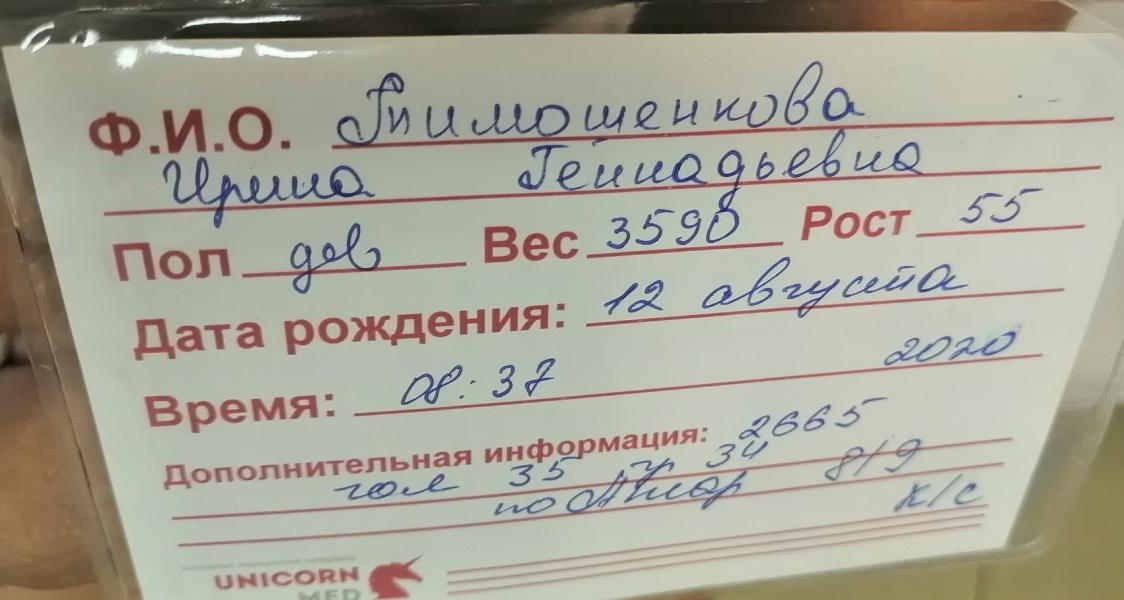 Ф.И.О. Тимошенкова
Ирина Геннадьевна
Пол дев Вес 3590 Рост 55
Дата рождения: 12 августа
2020
Время: 08:37
Дополнительная информация: 2665
гол 35 гр 34
по Апгар 8/9
к/с
UNICORN
MED